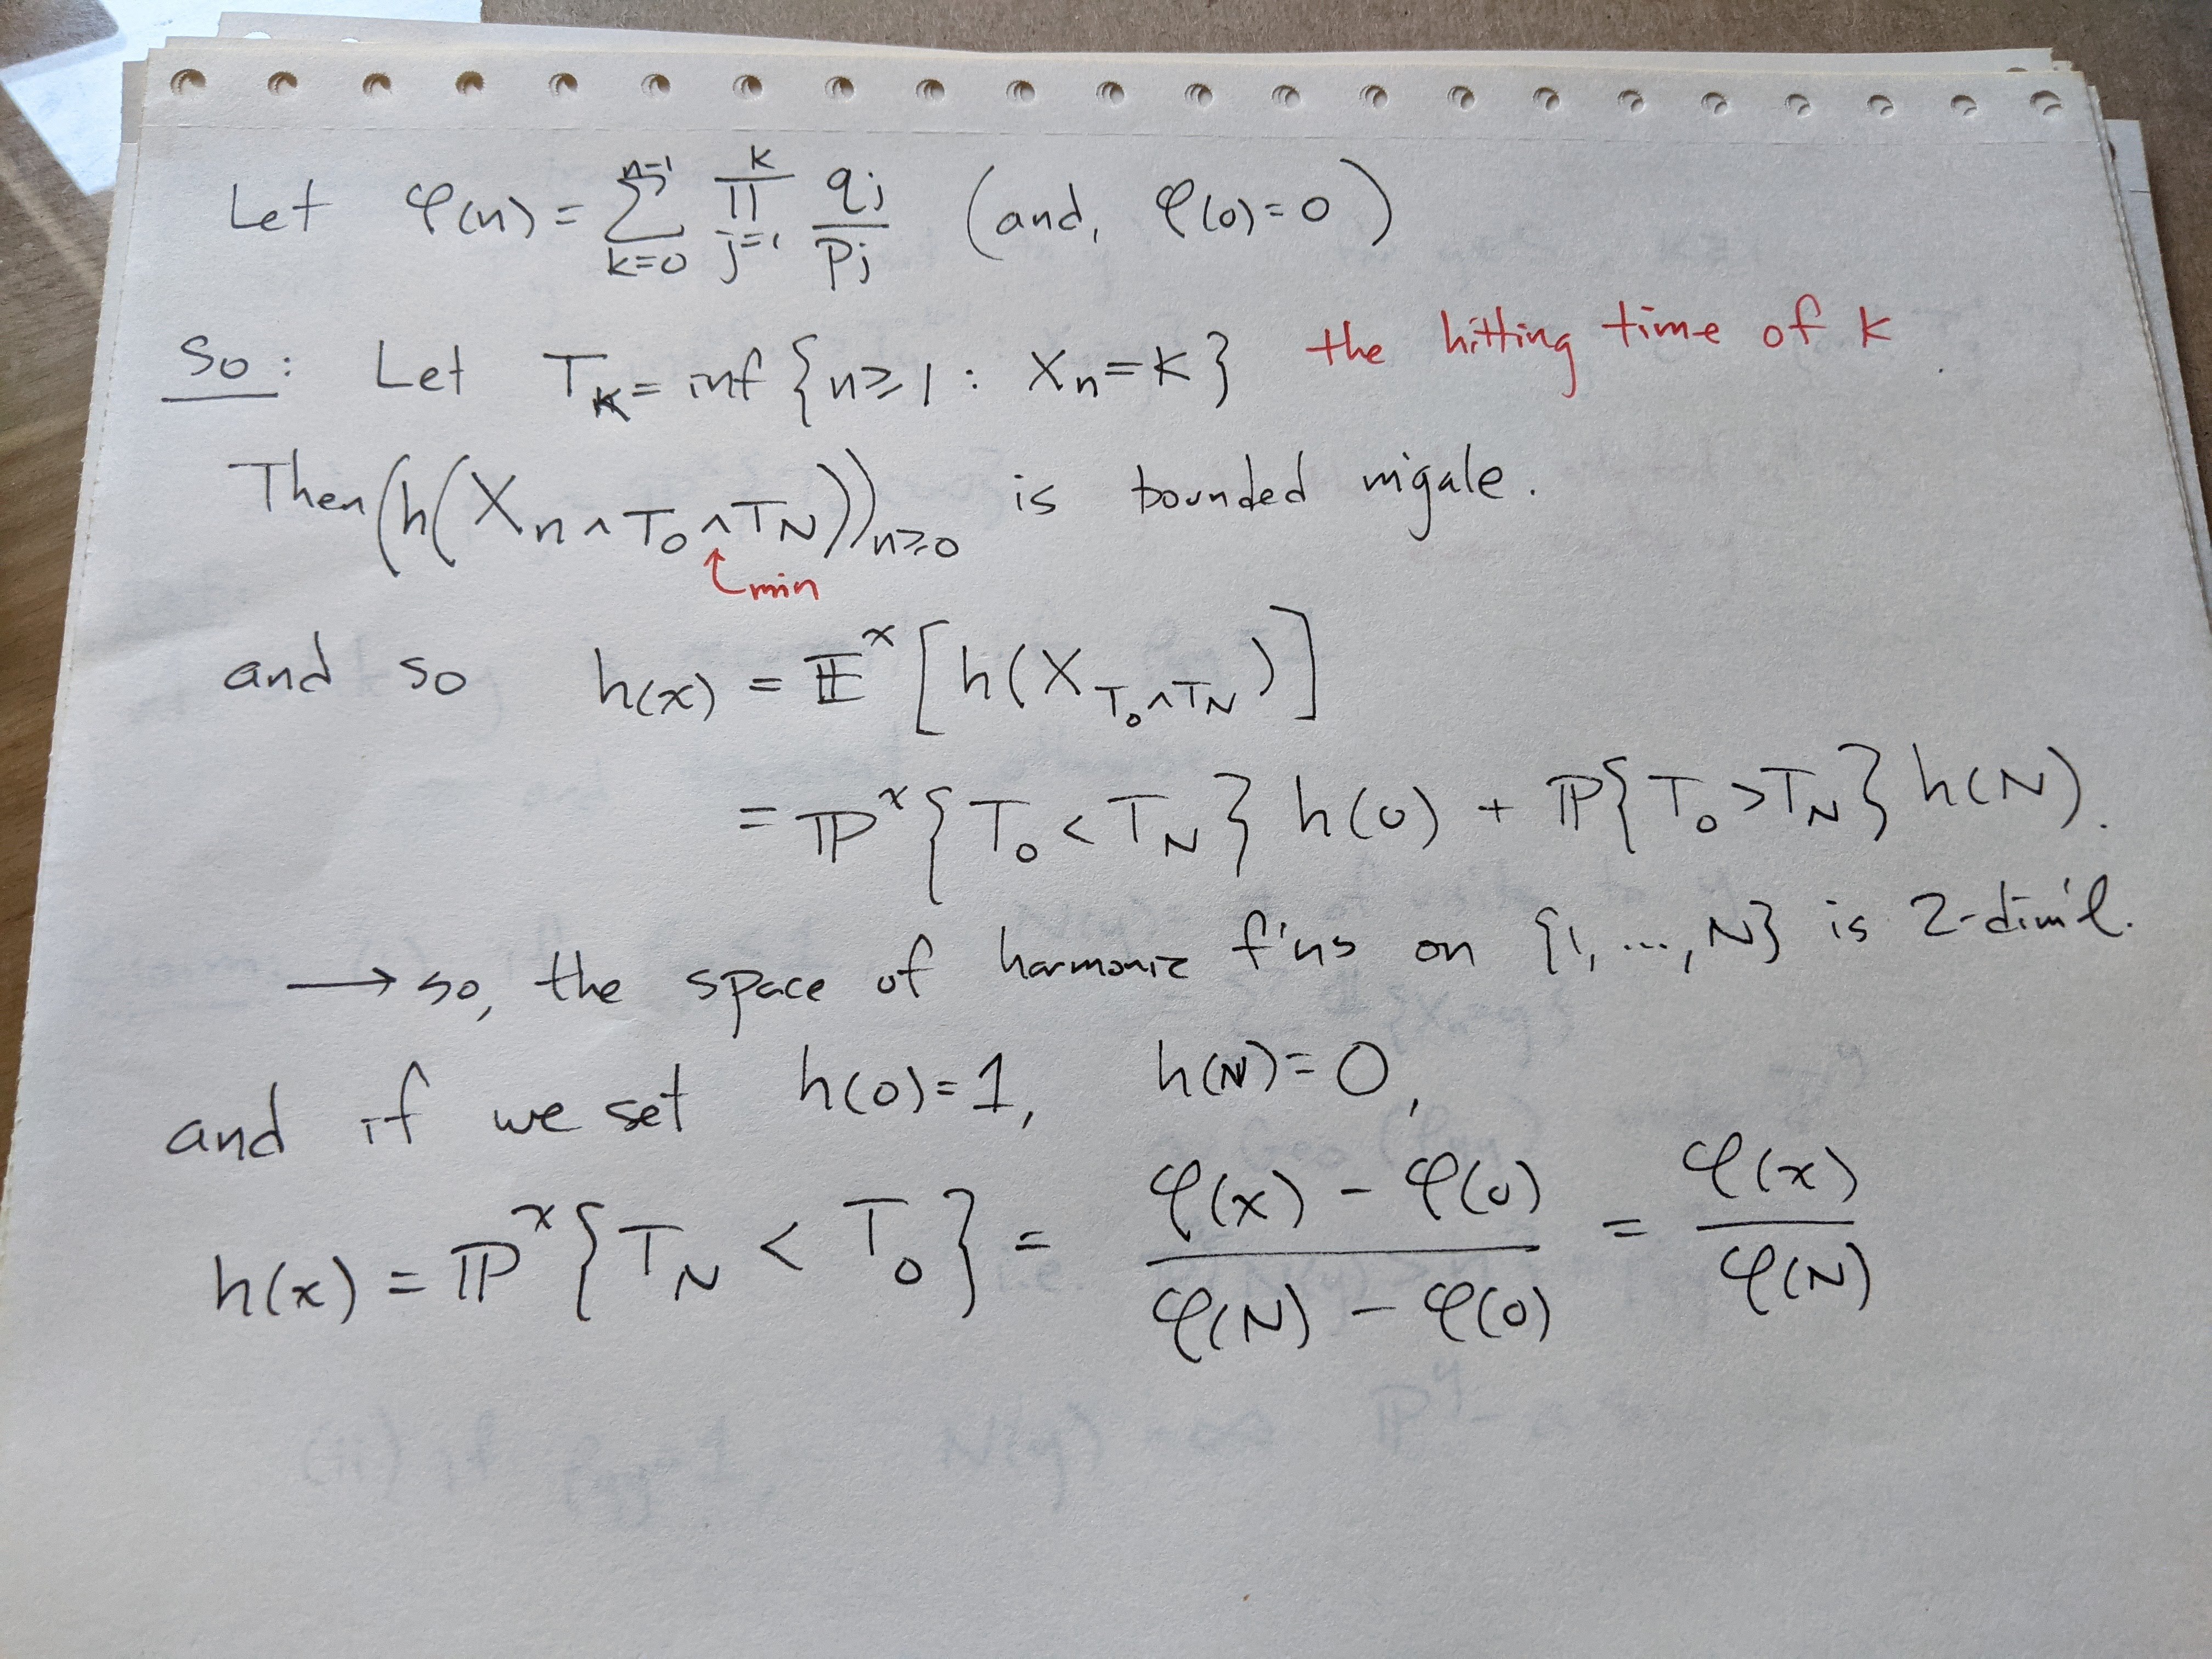 Let φ(n) = ∑_{k=0}^{n-1} ∏_{j=1}^{k} q_j / p_j (and, φ(0)=0)
So: Let T_k = inf {n ≥ 1 : X_n = k} the hitting time of k
Then (h(X_{n ∧ T_0 ∧ T_N}))_{n≥0} is bounded mgale.
min
and so h(x) = 𝔼^x [h(X_{T_0 ∧ T_N})]
= ℙ^x {T_0 < T_N} h(0) + ℙ{T_0 > T_N} h(N).
→ so, the space of harmonic f'ns on {1, ..., N} is 2-dim'l.
and if we set h(0)=1, h(N)=0,
h(x) = ℙ^x {T_N < T_0} = (φ(x) - φ(0)) / (φ(N) - φ(0)) = φ(x) / φ(N)